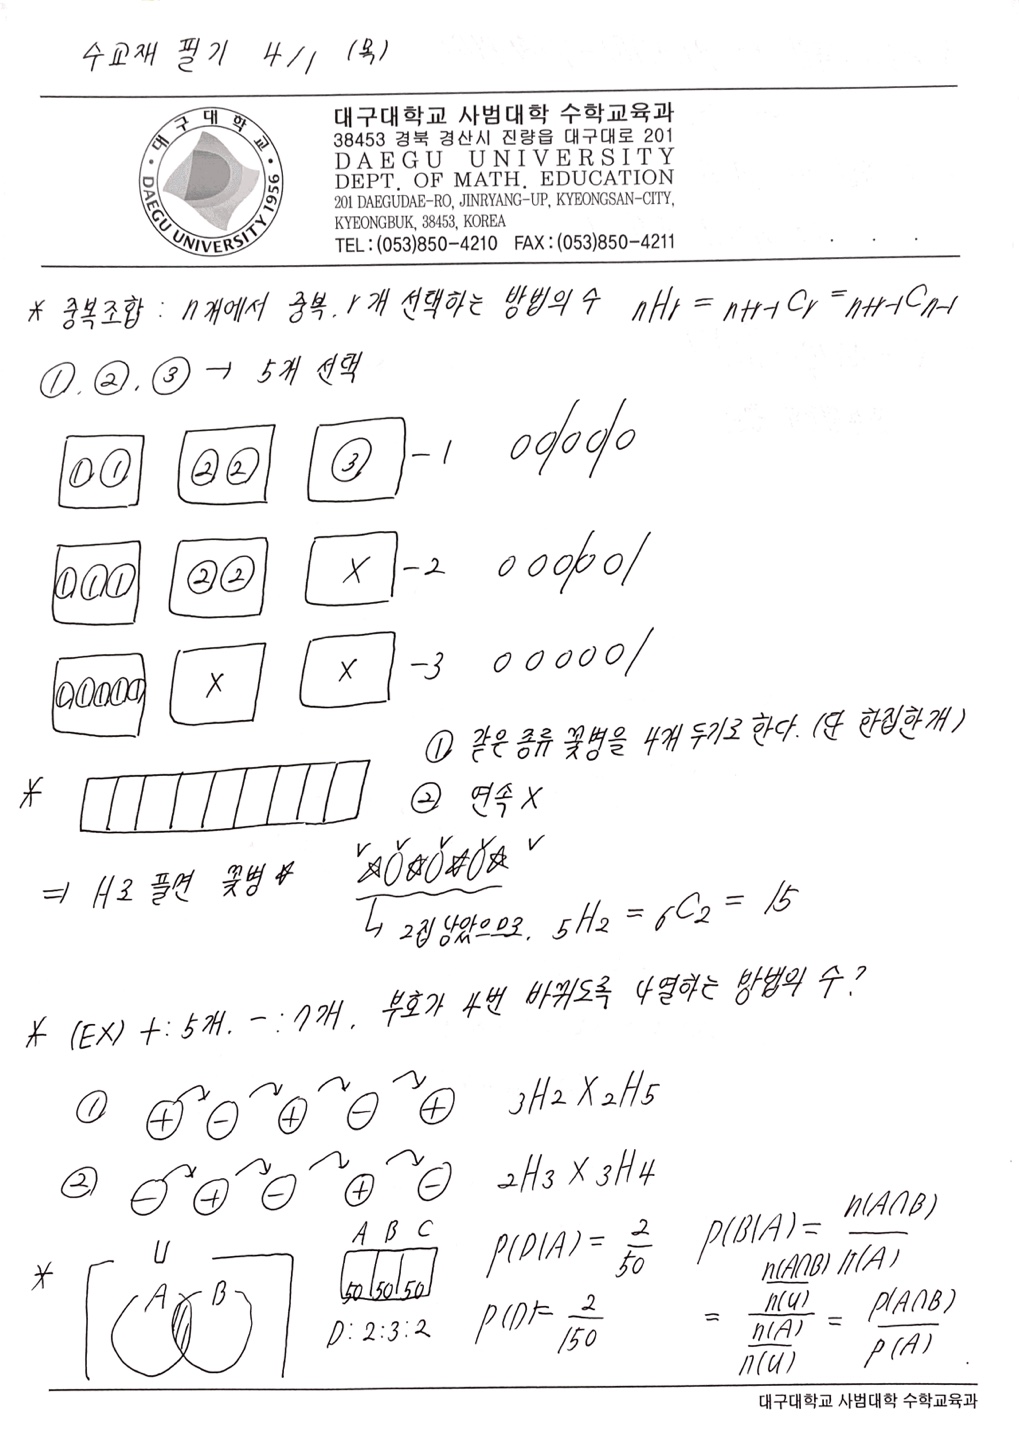 수교재 필기 4/1 (목)
대구대학교
DAEGU UNIVERSITY 1956
대구대학교 사범대학 수학교육과
38453 경북 경산시 진량읍 대구대로 201
DAEGU UNIVERSITY
DEPT. OF MATH. EDUCATION
201 DAEGUDAE-RO, JINRYANG-UP, KYEONGSAN-CITY,
KYEONGBUK, 38453, KOREA
TEL:(053)850-4210 FAX:(053)850-4211
* 중복조합 : n개에서 중복. r개 선택하는 방법의 수 nHr = n+r-1Cr = n+r-1Cn-1
①, ②, ③ → 5개 선택
①① ②② ③ -1 00/00/0
①①① ②② X -2 000/00/
①①①①① X X -3 00000/
① 같은 종류 꽃병을 4개 두기로 한다. (단 한집한개)
*
② 연속 X
⇒ H로 풀면 꽃병 ☆ ∨☆0∨☆0∨☆0∨☆∨
↳ 2집 남았으므로, 5H2 = 6C2 = 15
* (EX) +: 5개. -: 7개. 부호가 4번 바뀌도록 나열하는 방법의 수?
① + - + - + 3H2 X 2H5
② - + - + - 2H3 X 3H4
* U A B
A B C
50 50 50
D: 2:3:2
P(D|A) = 2/50
P(D) = 2/150
P(B|A) = n(A∩B)/n(A)
= (n(A∩B)/n(U))/(n(A)/n(U)) = P(A∩B)/P(A)
대구대학교 사범대학 수학교육과